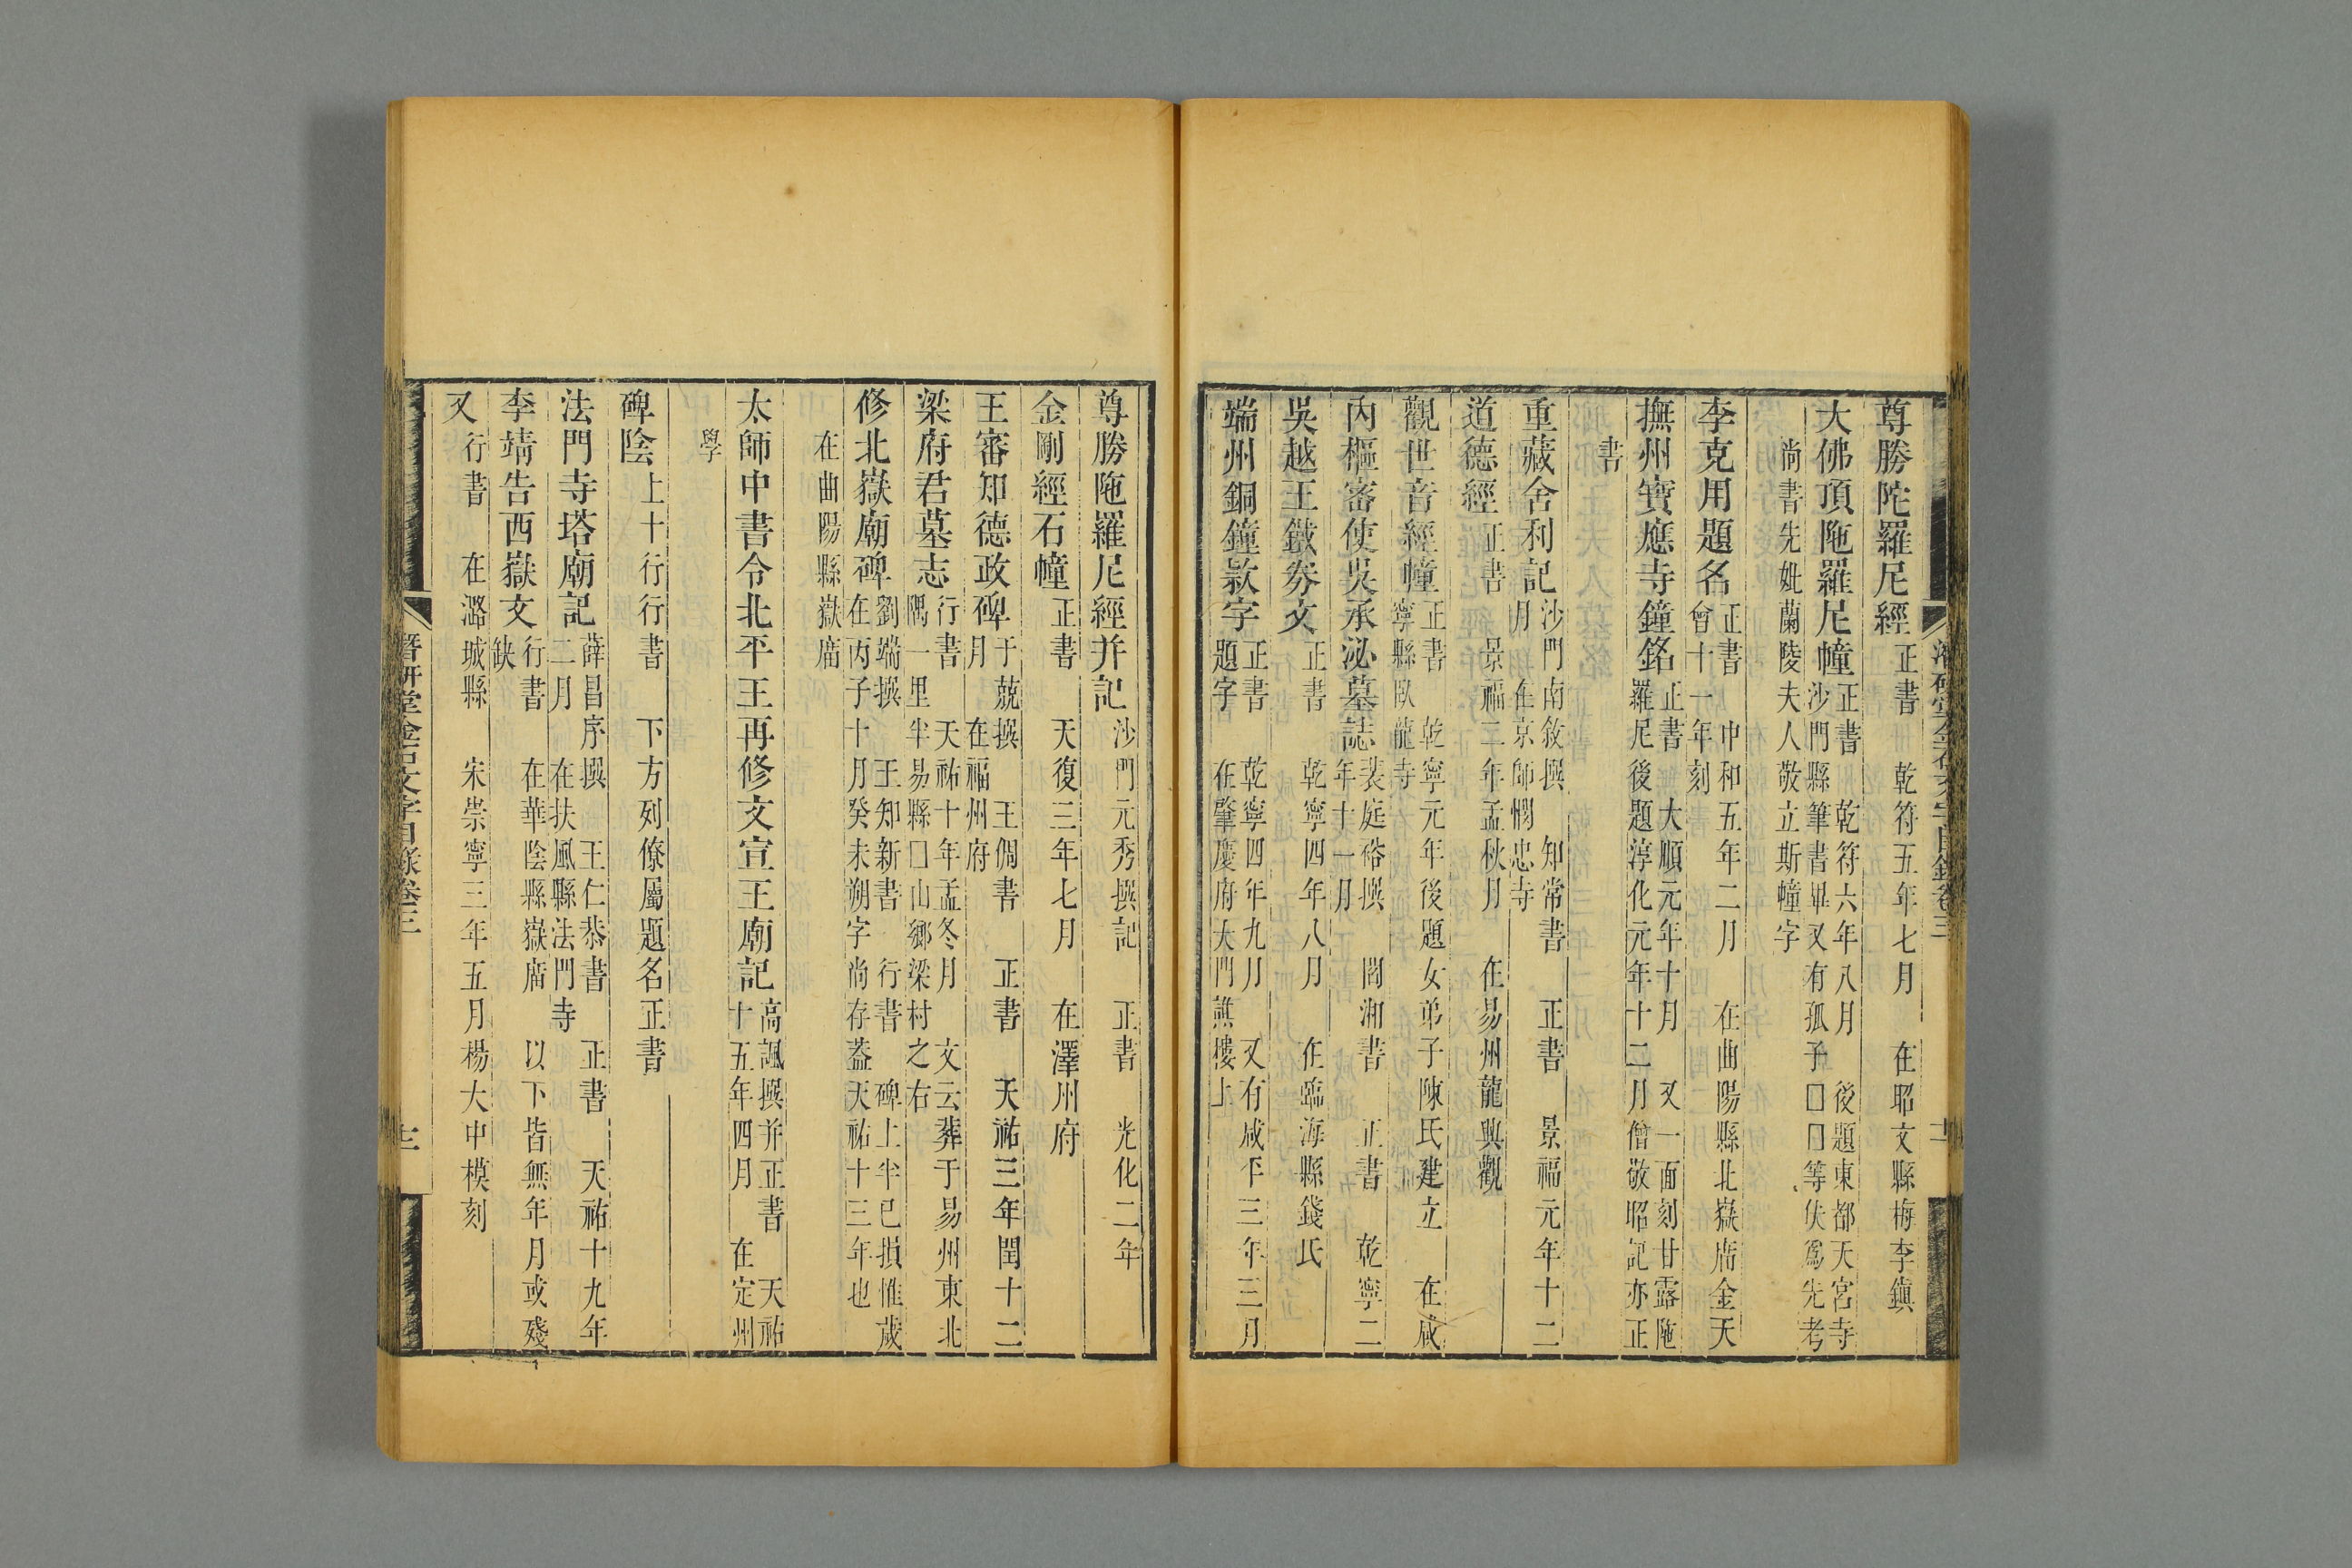 尊勝陀羅尼經正書　乾符五年七月　在昭文縣梅李鎮
大佛頂陁羅尼幢正書　乾符六年八月　後題東都天宮寺
沙門縣筆書畢又有孤子囗囗等伏爲先考
尚書先妣蘭陵夫人敬立斯幢字
李克用題名正書　中和五年二月　在曲陽縣北嶽庿金天
會十一年刻
撫州寳應寺鐘銘正書　大順元年十月　又一面刻甘露陁
羅尼後題淳化元年十二月僧敬昭記亦正
書
重藏舍利記沙門南敘撰　知常書　正書　景福元年十二
月　在京師憫忠寺
道德經正書　景福二年孟秋月　在易州龍興觀
觀世音經幢正書　乾寧元年後題女弟子陳氏建立　在咸
寧縣臥龍寺
內樞密使吳承泌墓誌裴庭裕撰　閻湘書　正書　乾寧二
年十一月
吳越王鐵券文正書　乾寧四年八月　在臨海縣錢氏
端州銅鐘款字正書　乾寧四年九月　又有咸平三年三月
題字　在肇慶府大門譙樓上
尊勝陁羅尼經并記沙門元秀撰記　正書　光化二年
金剛經石幢正書　天復三年七月　在澤州府
王審知德政碑于兢撰　王倜書　正書　天祐三年閏十二
月　在福州府
梁府君墓志行書　天祐十年孟冬月　文云葬于易州東北
隅一里半易縣囗山鄉梁村之右
修北嶽廟碑劉端撰　王知新書　行書　碑上半已損惟歲
在丙子十月癸未朔字尚存葢天祐十三年也
在曲陽縣嶽庿
太師中書令北平王再修文宣王廟記高諷撰并正書　天祐
十五年四月　在定州
學
碑陰上十行行書　下方列僚屬題名正書
法門寺塔廟記薛昌序撰　王仁恭書　正書　天祐十九年
二月　在扶風縣法門寺
李靖告西嶽文行書　在華陰縣嶽庿　以下皆無年月或殘
缺
又行書　在潞城縣　宋崇寧三年五月楊大中模刻
潛研堂金石文字目錄卷三